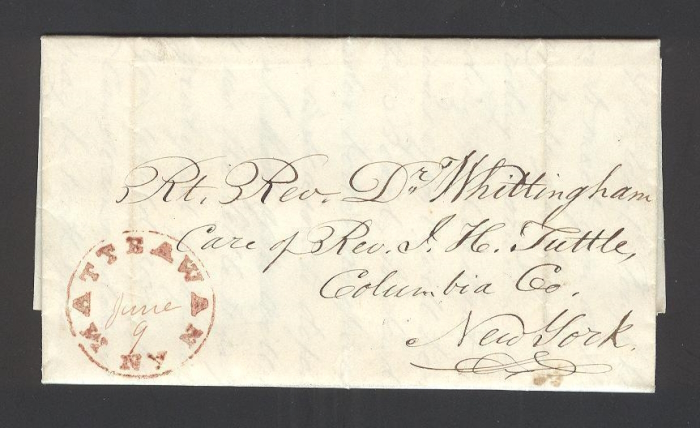 Rt. Rev. Dr. Whittingham
Care of Rev. I. H. Tuttle,
Columbia Co.
New York.
MATTEAWAN
June
9
NY